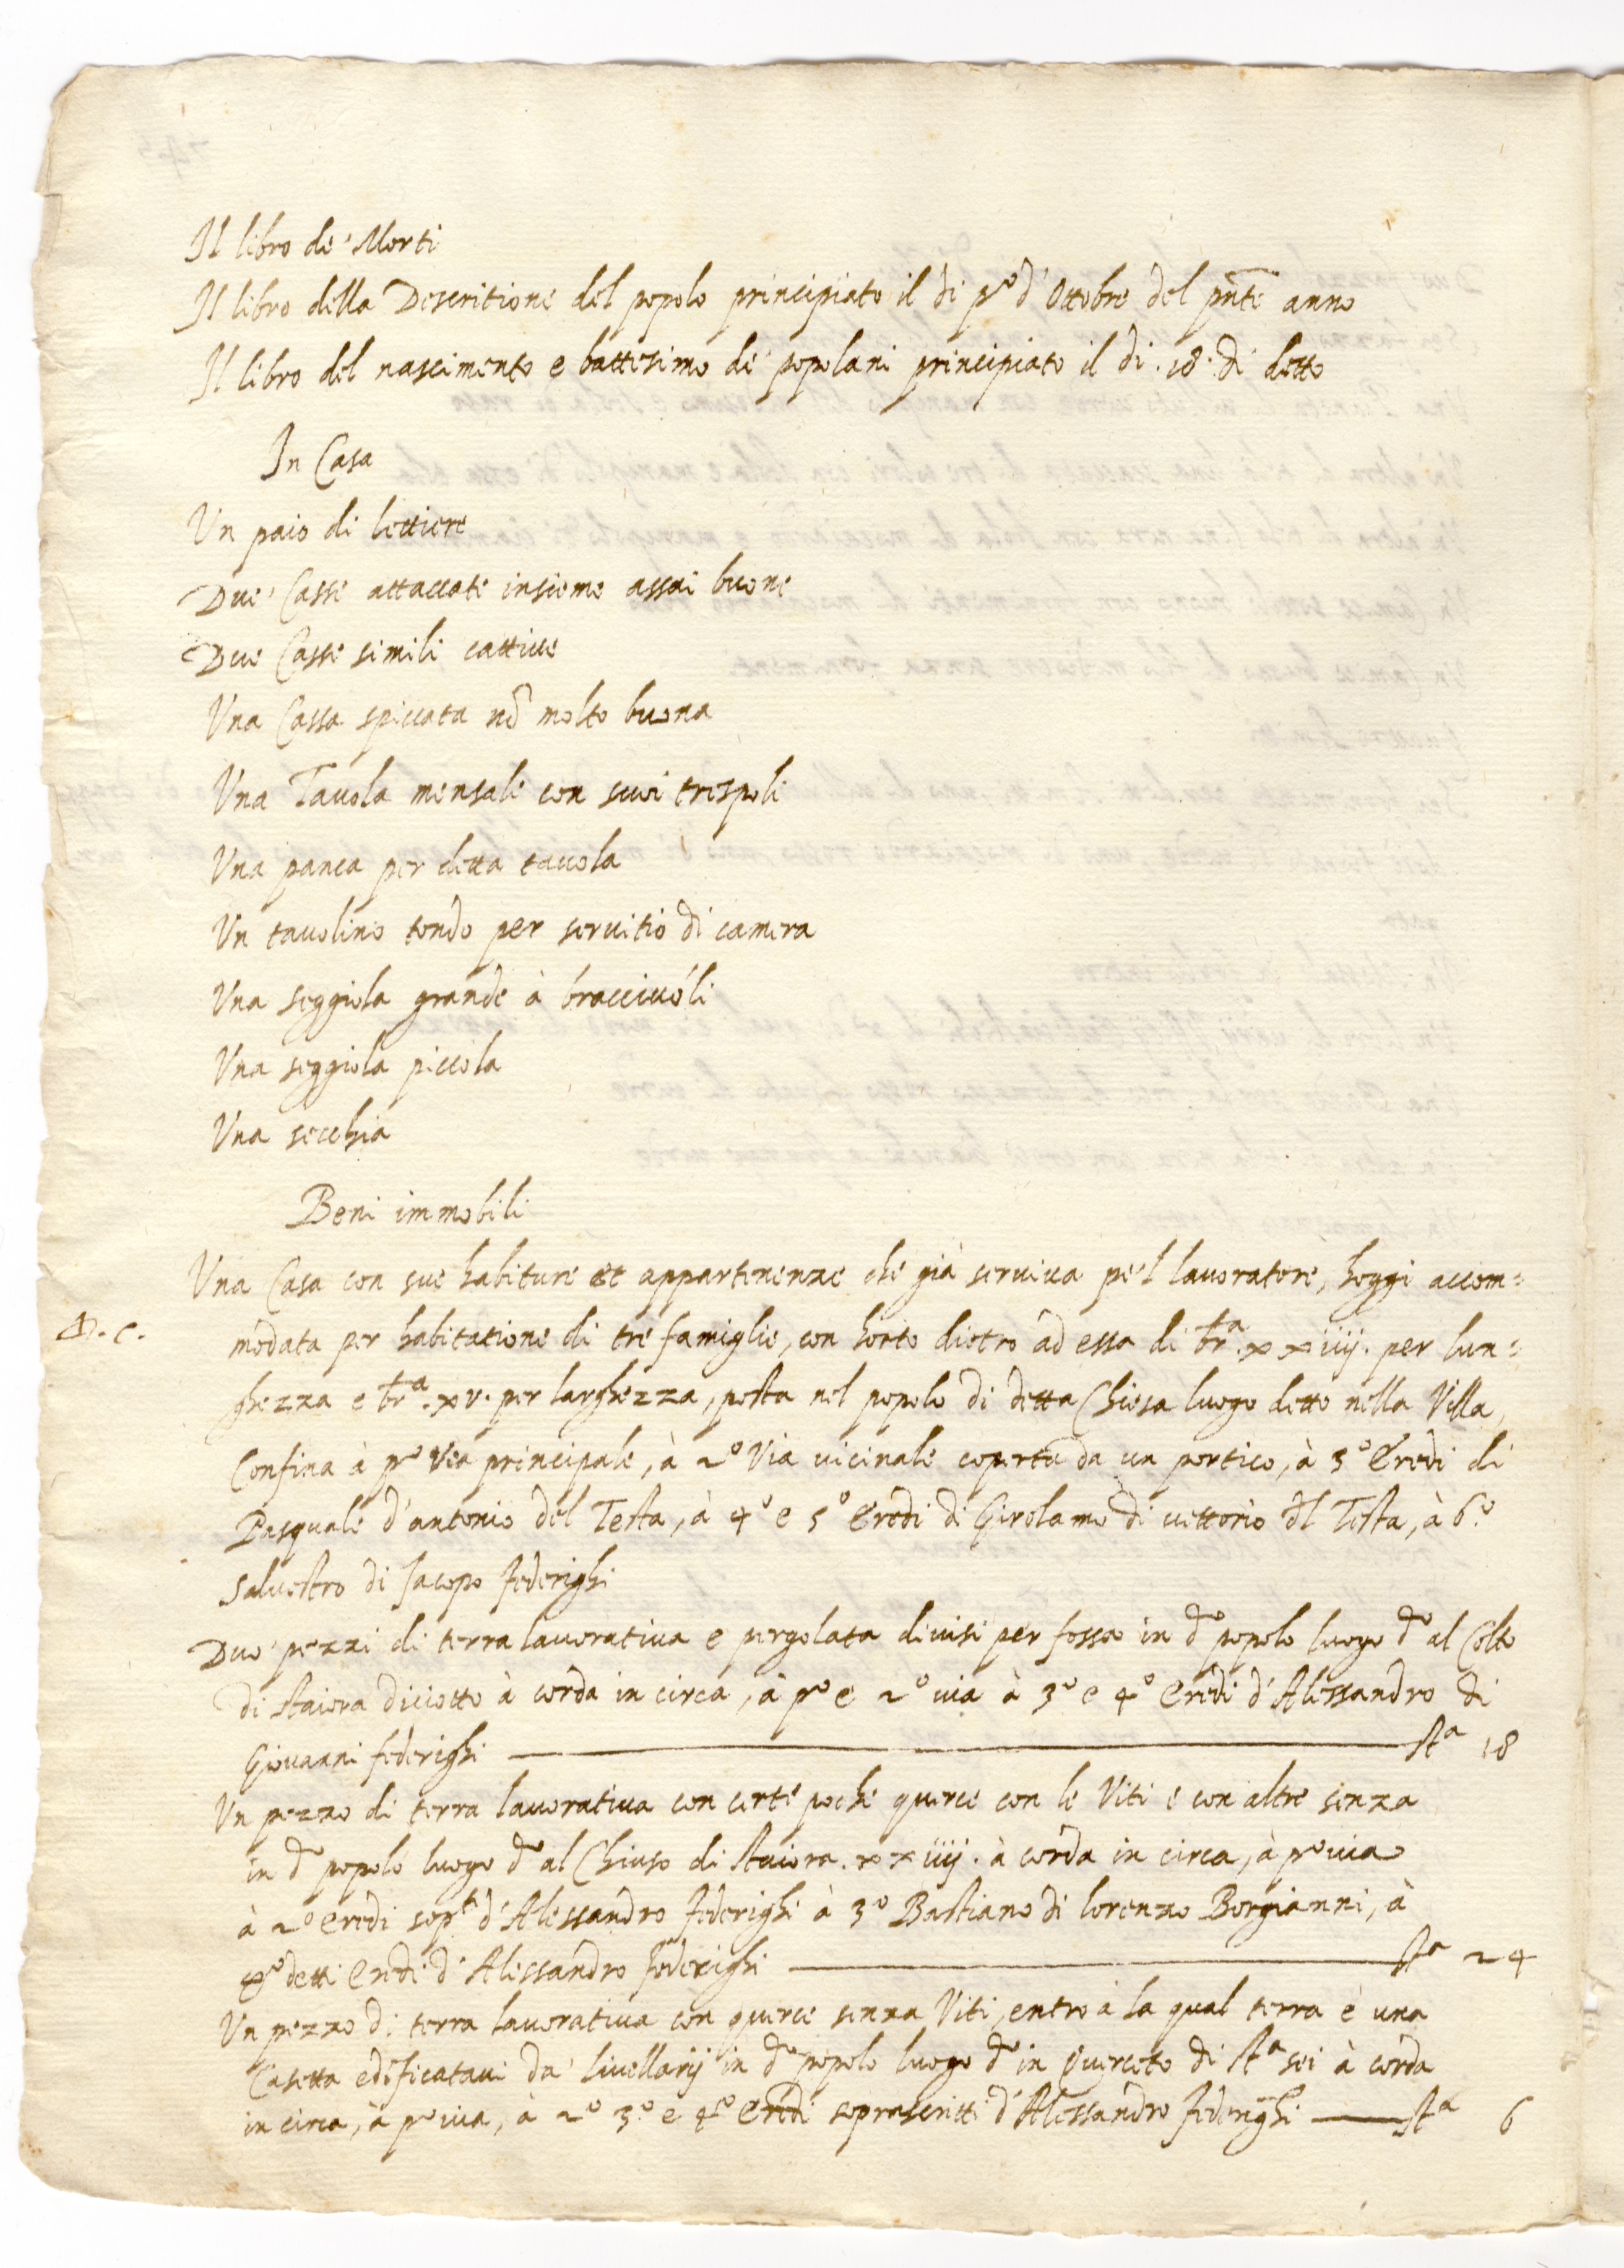 Il libro de' Morti
Il libro della Descritione del popolo principiato il di p.º d'Ottobre del pnte anno
Il libro del nascimento e battesimo de' popolani principiato il di .18. di detto
In Casa
Un paio di lettiere
Due Casse attaccate insieme assai buone
Due Casse simili cattive
Una Cassa spiccata nō molto buona
Una Tavola mensale con suoi trespoli
Una panca per detta tavola
Un tavolino tondo per servitio di camera
Una seggiola grande à bracciuoli
Una seggiola piccola
Una secchia
Beni immobili
Una Casa con sue habiture et appartenenze che già serviva pe'l lavoratore, hoggi accom=
modata per habitatione di tre famiglie, con horto dietro ad essa di brª. xxiiij. per lun=
ghezza e brª. xv. per larghezza, posta nel popolo di detta Chiesa luogo detto nella Villa,
Confina à pº Via principale, à 2º Via vicinale coperta da un portico, à 3º Eredi di
Pasquale d'antonio del Testa, à 4º e 5º Eredi di Girolamo di vettorio dl Testa, à 6º
Salvestro di Jacopo Federighi
Duo pezzi di terra lavorativa e pergolata divisi per fossa in dº popolo luogo dº al Colto
di staiora diciotto à corda in circa, à pº e 2º via à 3º e 4º Eredi d'Alessandro di
Giovanni federighi ——— stª 18
Un pezzo di terra lavorativa con certe poche querce con le Viti e con altre senza
in dº popolo luogo dº al Chiuso di staiora .xxiiij. à corda in circa, à pº via
à 2º Eredi sopti d'Alessandro Federighi à 3º Bastiano di lorenzo Borgianni, à
4º detti Eredi d'Alissandro Federighi ——— stª 24
Un pezzo di terra lavorativa con querce senza Viti, entro à la qual terra è una
Casetta edificatavi da' livellarij in dº popolo luogo dº in Querceto di stª sei à corda
in circa, à pº via, à 2º 3º e 4º Eredi soprascritti d'Alessandro Federighi ——— stª 6